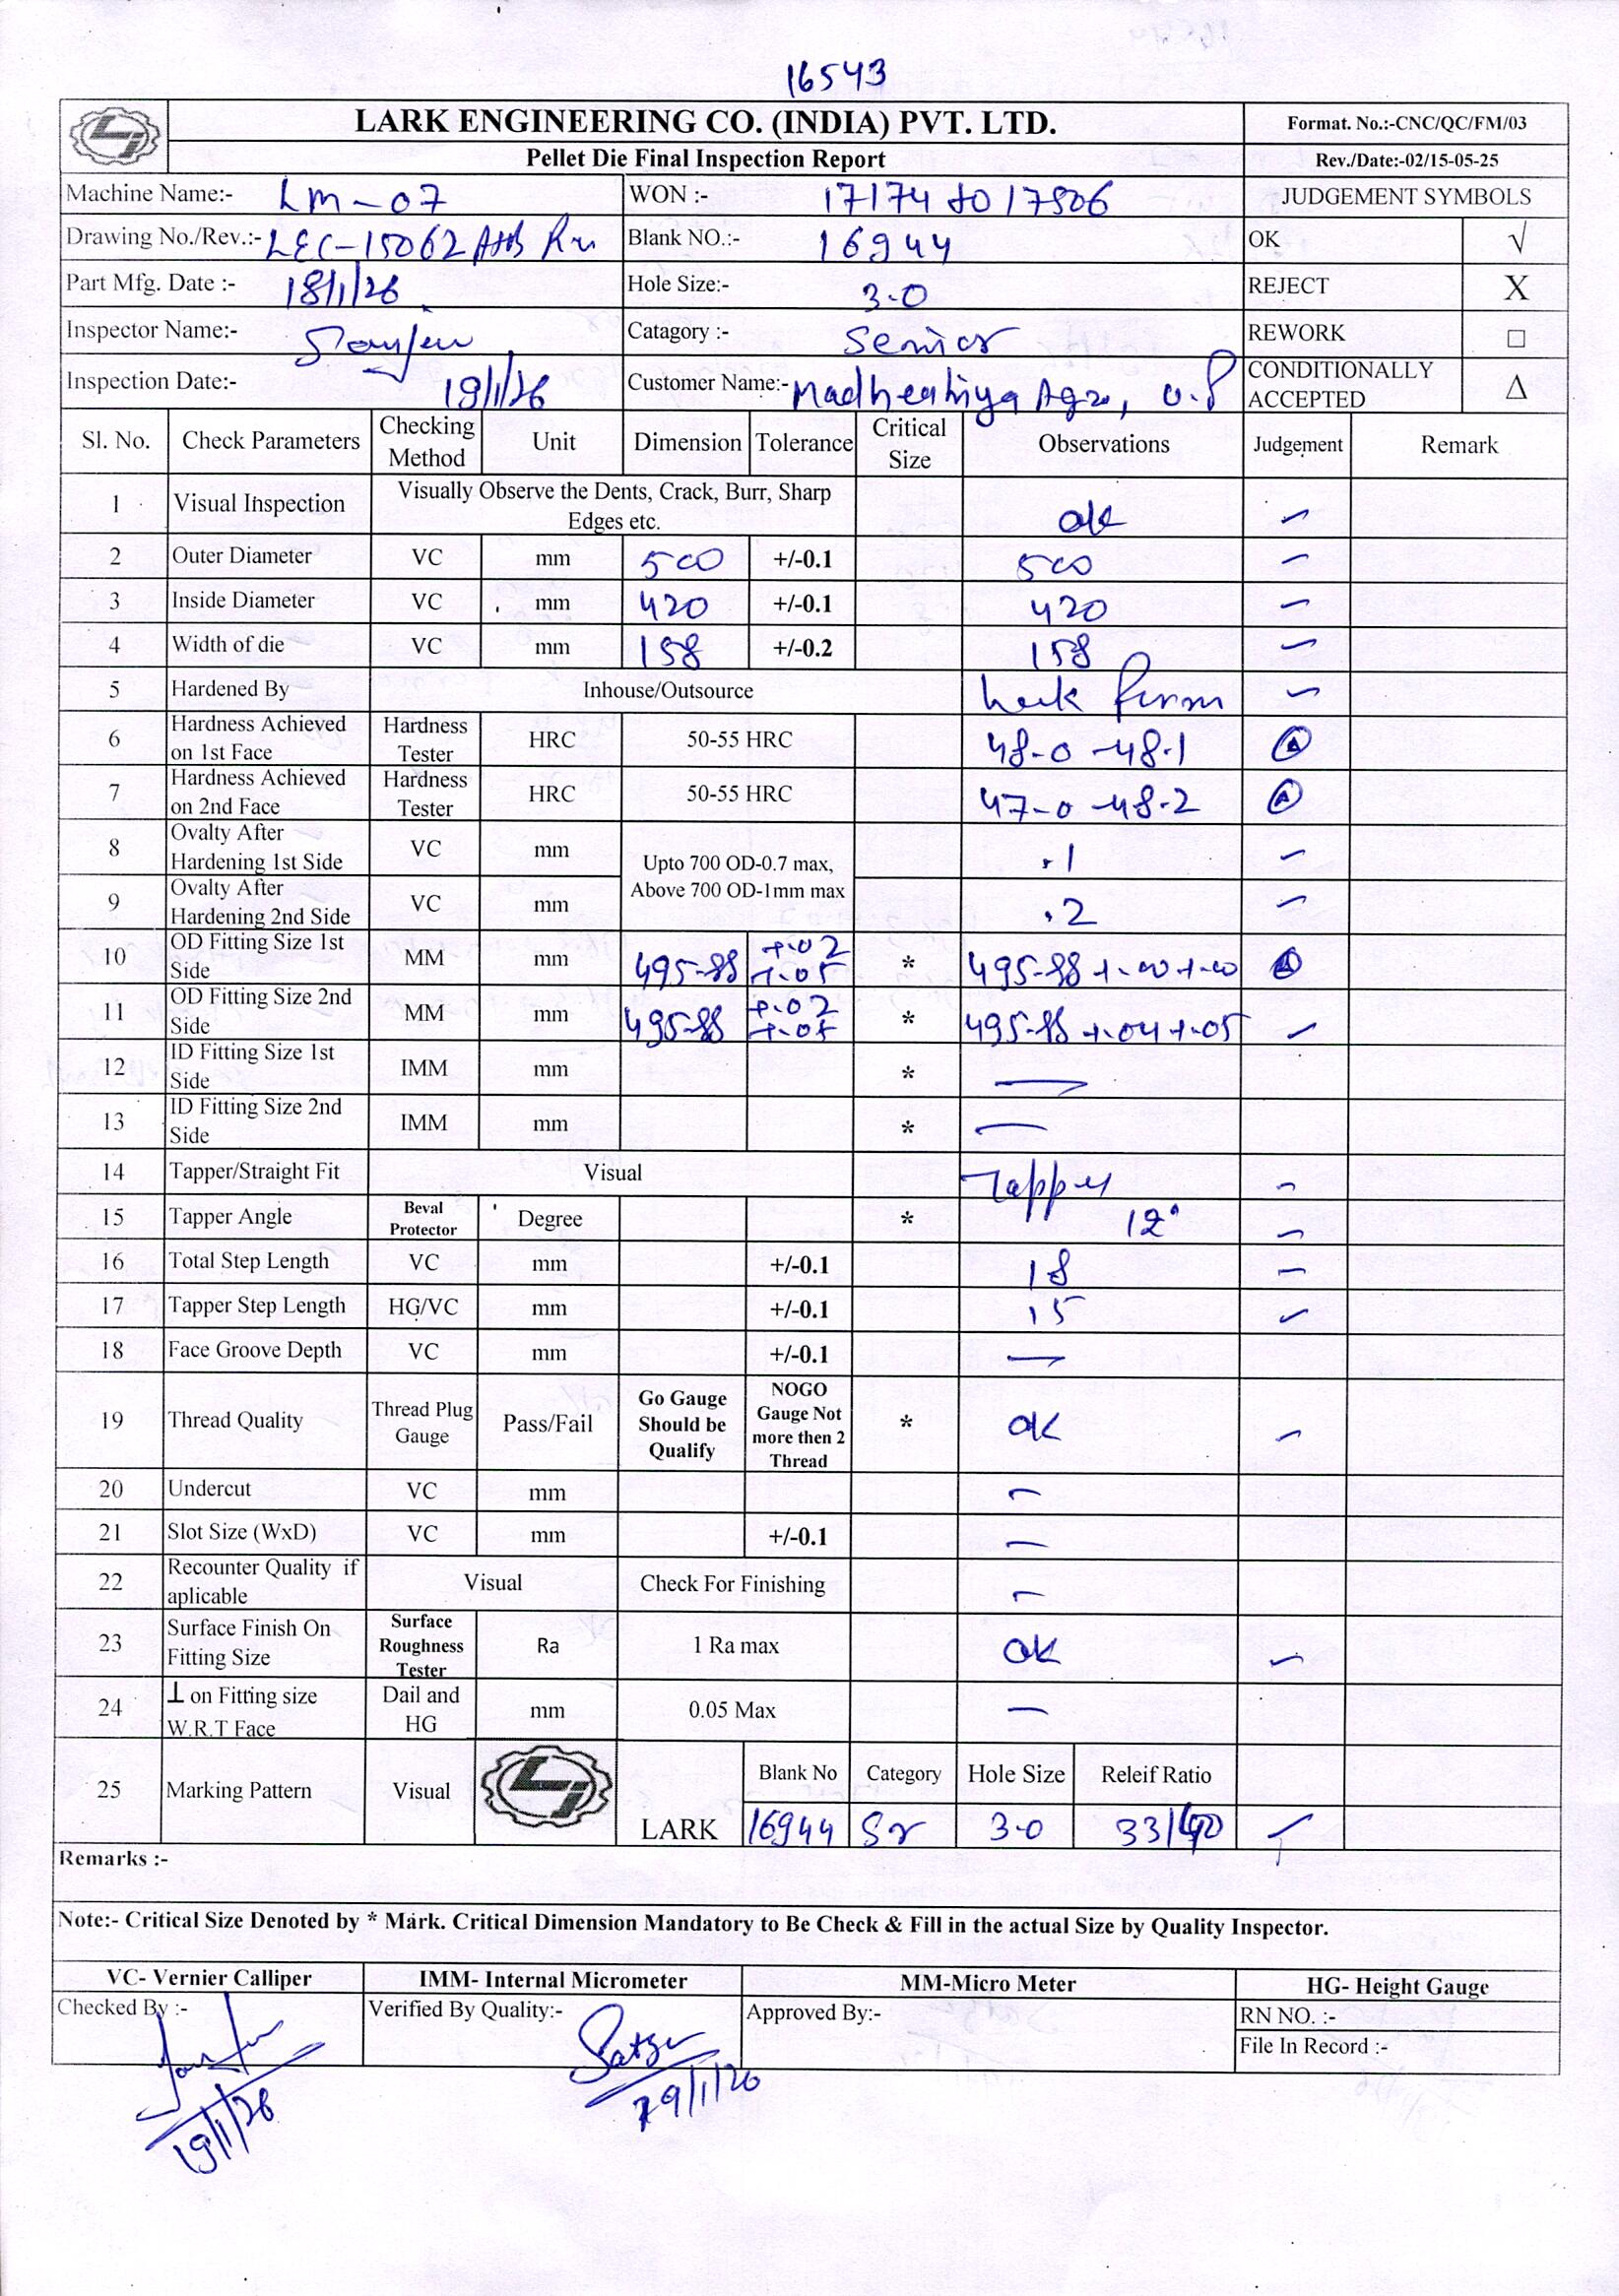 16543
LARK ENGINEERING CO. (INDIA) PVT. LTD.
Format. No.:-CNC/QC/FM/03
Pellet Die Final Inspection Report
Rev./Date:-02/15-05-25
Machine Name:- LM-07 WON :- 17174 to 17506 JUDGEMENT SYMBOLS
Drawing No./Rev.:- LEC-15062 Blank NO.:- 16944 OK √
Part Mfg. Date :- 18/1/26 Hole Size:- 3.0 REJECT X
Inspector Name:- Catagory :- Senior REWORK □
Inspection Date:- 19/1/26 Customer Name:- Agro, U.P CONDITIONALLY ACCEPTED Δ
Sl. No. Check Parameters Checking Method Unit Dimension Tolerance Critical Size Observations Judgement Remark
1 Visual Inspection Visually Observe the Dents, Crack, Burr, Sharp Edges etc. ok
2 Outer Diameter VC mm 500 +/-0.1 500
3 Inside Diameter VC mm 420 +/-0.1 420
4 Width of die VC mm 158 +/-0.2 158
5 Hardened By Inhouse/Outsource
6 Hardness Achieved on 1st Face Hardness Tester HRC 50-55 HRC 48-0 -48.1
7 Hardness Achieved on 2nd Face Hardness Tester HRC 50-55 HRC 47-0 -48-2
8 Ovalty After Hardening 1st Side VC mm Upto 700 OD-0.7 max, Above 700 OD-1mm max .1
9 Ovalty After Hardening 2nd Side VC mm .2
10 OD Fitting Size 1st Side MM mm 495-88 +.02 +.05 * 495-88 +.00+.00
11 OD Fitting Size 2nd Side MM mm 495-88 +.02 +.05 * 495-88 +.04+.05
12 ID Fitting Size 1st Side IMM mm *
13 ID Fitting Size 2nd Side IMM mm *
14 Tapper/Straight Fit Visual Tapper
15 Tapper Angle Beval Protector Degree * 12°
16 Total Step Length VC mm +/-0.1 18
17 Tapper Step Length HG/VC mm +/-0.1 15
18 Face Groove Depth VC mm +/-0.1
19 Thread Quality Thread Plug Gauge Pass/Fail Go Gauge Should be Qualify NOGO Gauge Not more then 2 Thread * ok
20 Undercut VC mm
21 Slot Size (WxD) VC mm +/-0.1
22 Recounter Quality if aplicable Visual Check For Finishing
23 Surface Finish On Fitting Size Surface Roughness Tester Ra 1 Ra max ok
24 ⊥ on Fitting size W.R.T Face Dail and HG mm 0.05 Max
25 Marking Pattern Visual LARK Blank No Category Hole Size Releif Ratio
16944 Sr 3.0 33/40
Remarks :-
Note:- Critical Size Denoted by * Mark. Critical Dimension Mandatory to Be Check & Fill in the actual Size by Quality Inspector.
VC- Vernier Calliper IMM- Internal Micrometer MM-Micro Meter HG- Height Gauge
Checked By :- Verified By Quality:- Approved By:- RN NO. :-
File In Record :-
19/1/26